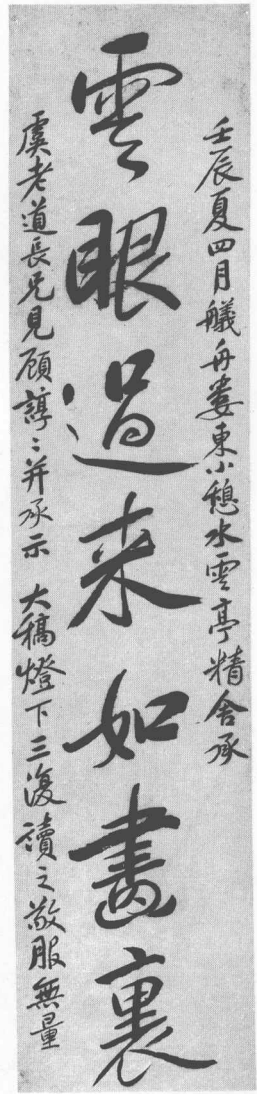 壬辰夏四月艤舟婁東小憩水雲亭精舍承
雲眼過来如畫裏
虞老道長兄見顧諄〻并承示 大稿燈下三復讀之敬服無量